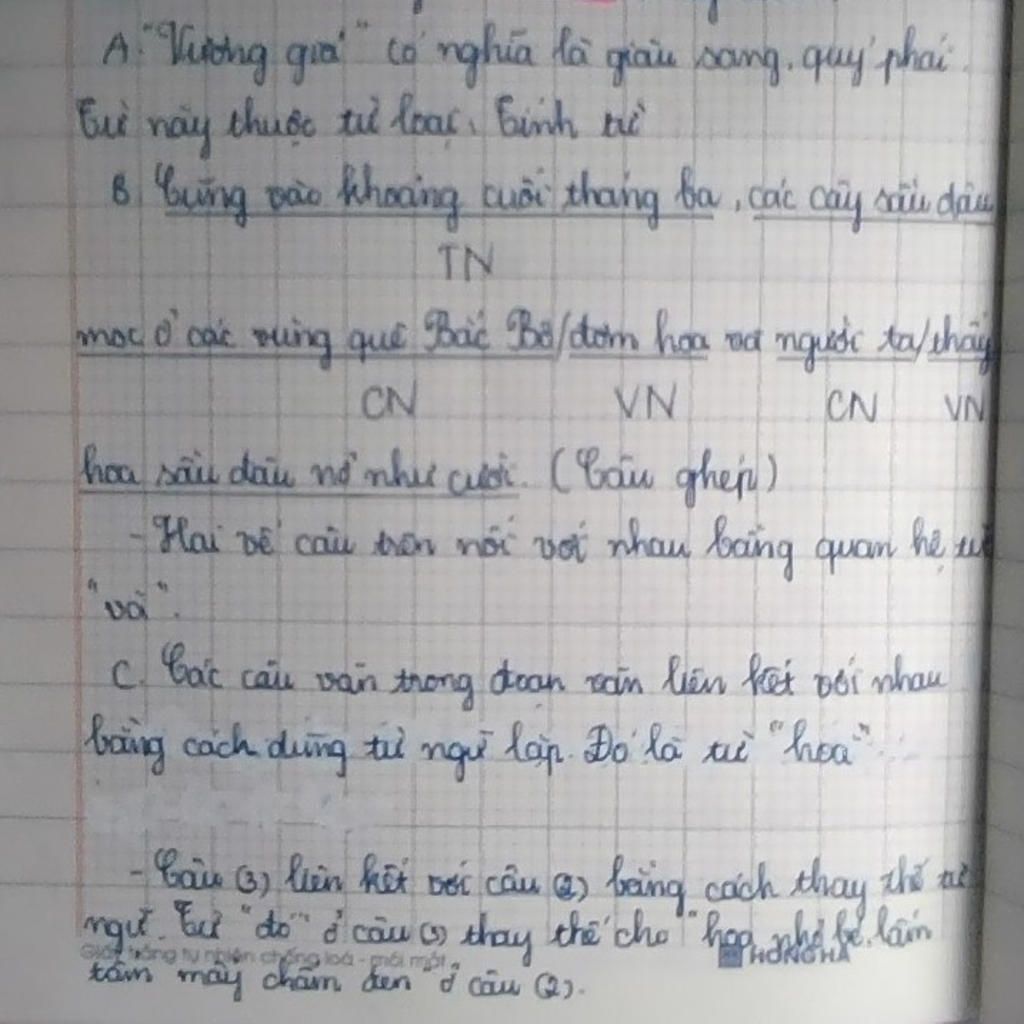 A. "Vương giả" có nghĩa là giàu sang, quý phái.
Từ này thuộc từ loại: Tính từ
B. Cũng vào khoảng cuối tháng ba, các cây sầu đâu
TN
mọc ở các vùng quê Bắc Bộ/đơm hoa và người ta/thấy
CN VN CN VN
hoa sầu đâu nở như cười. (Câu ghép)
- Hai vế câu trên nối với nhau bằng quan hệ từ
"và".
C. Các câu văn trong đoạn văn liên kết với nhau
bằng cách dùng từ ngữ lặp. Đó là từ "hoa"
- Câu (3) liên kết với câu (2) bằng cách thay thế từ
ngữ. Từ "đó" ở câu (3) thay thế cho "hoa nhỏ bé, lấm
Giấy trắng tự nhiên chống loá - mỏi mắt
HONG HA
tấm mấy chấm đen" ở câu (2).